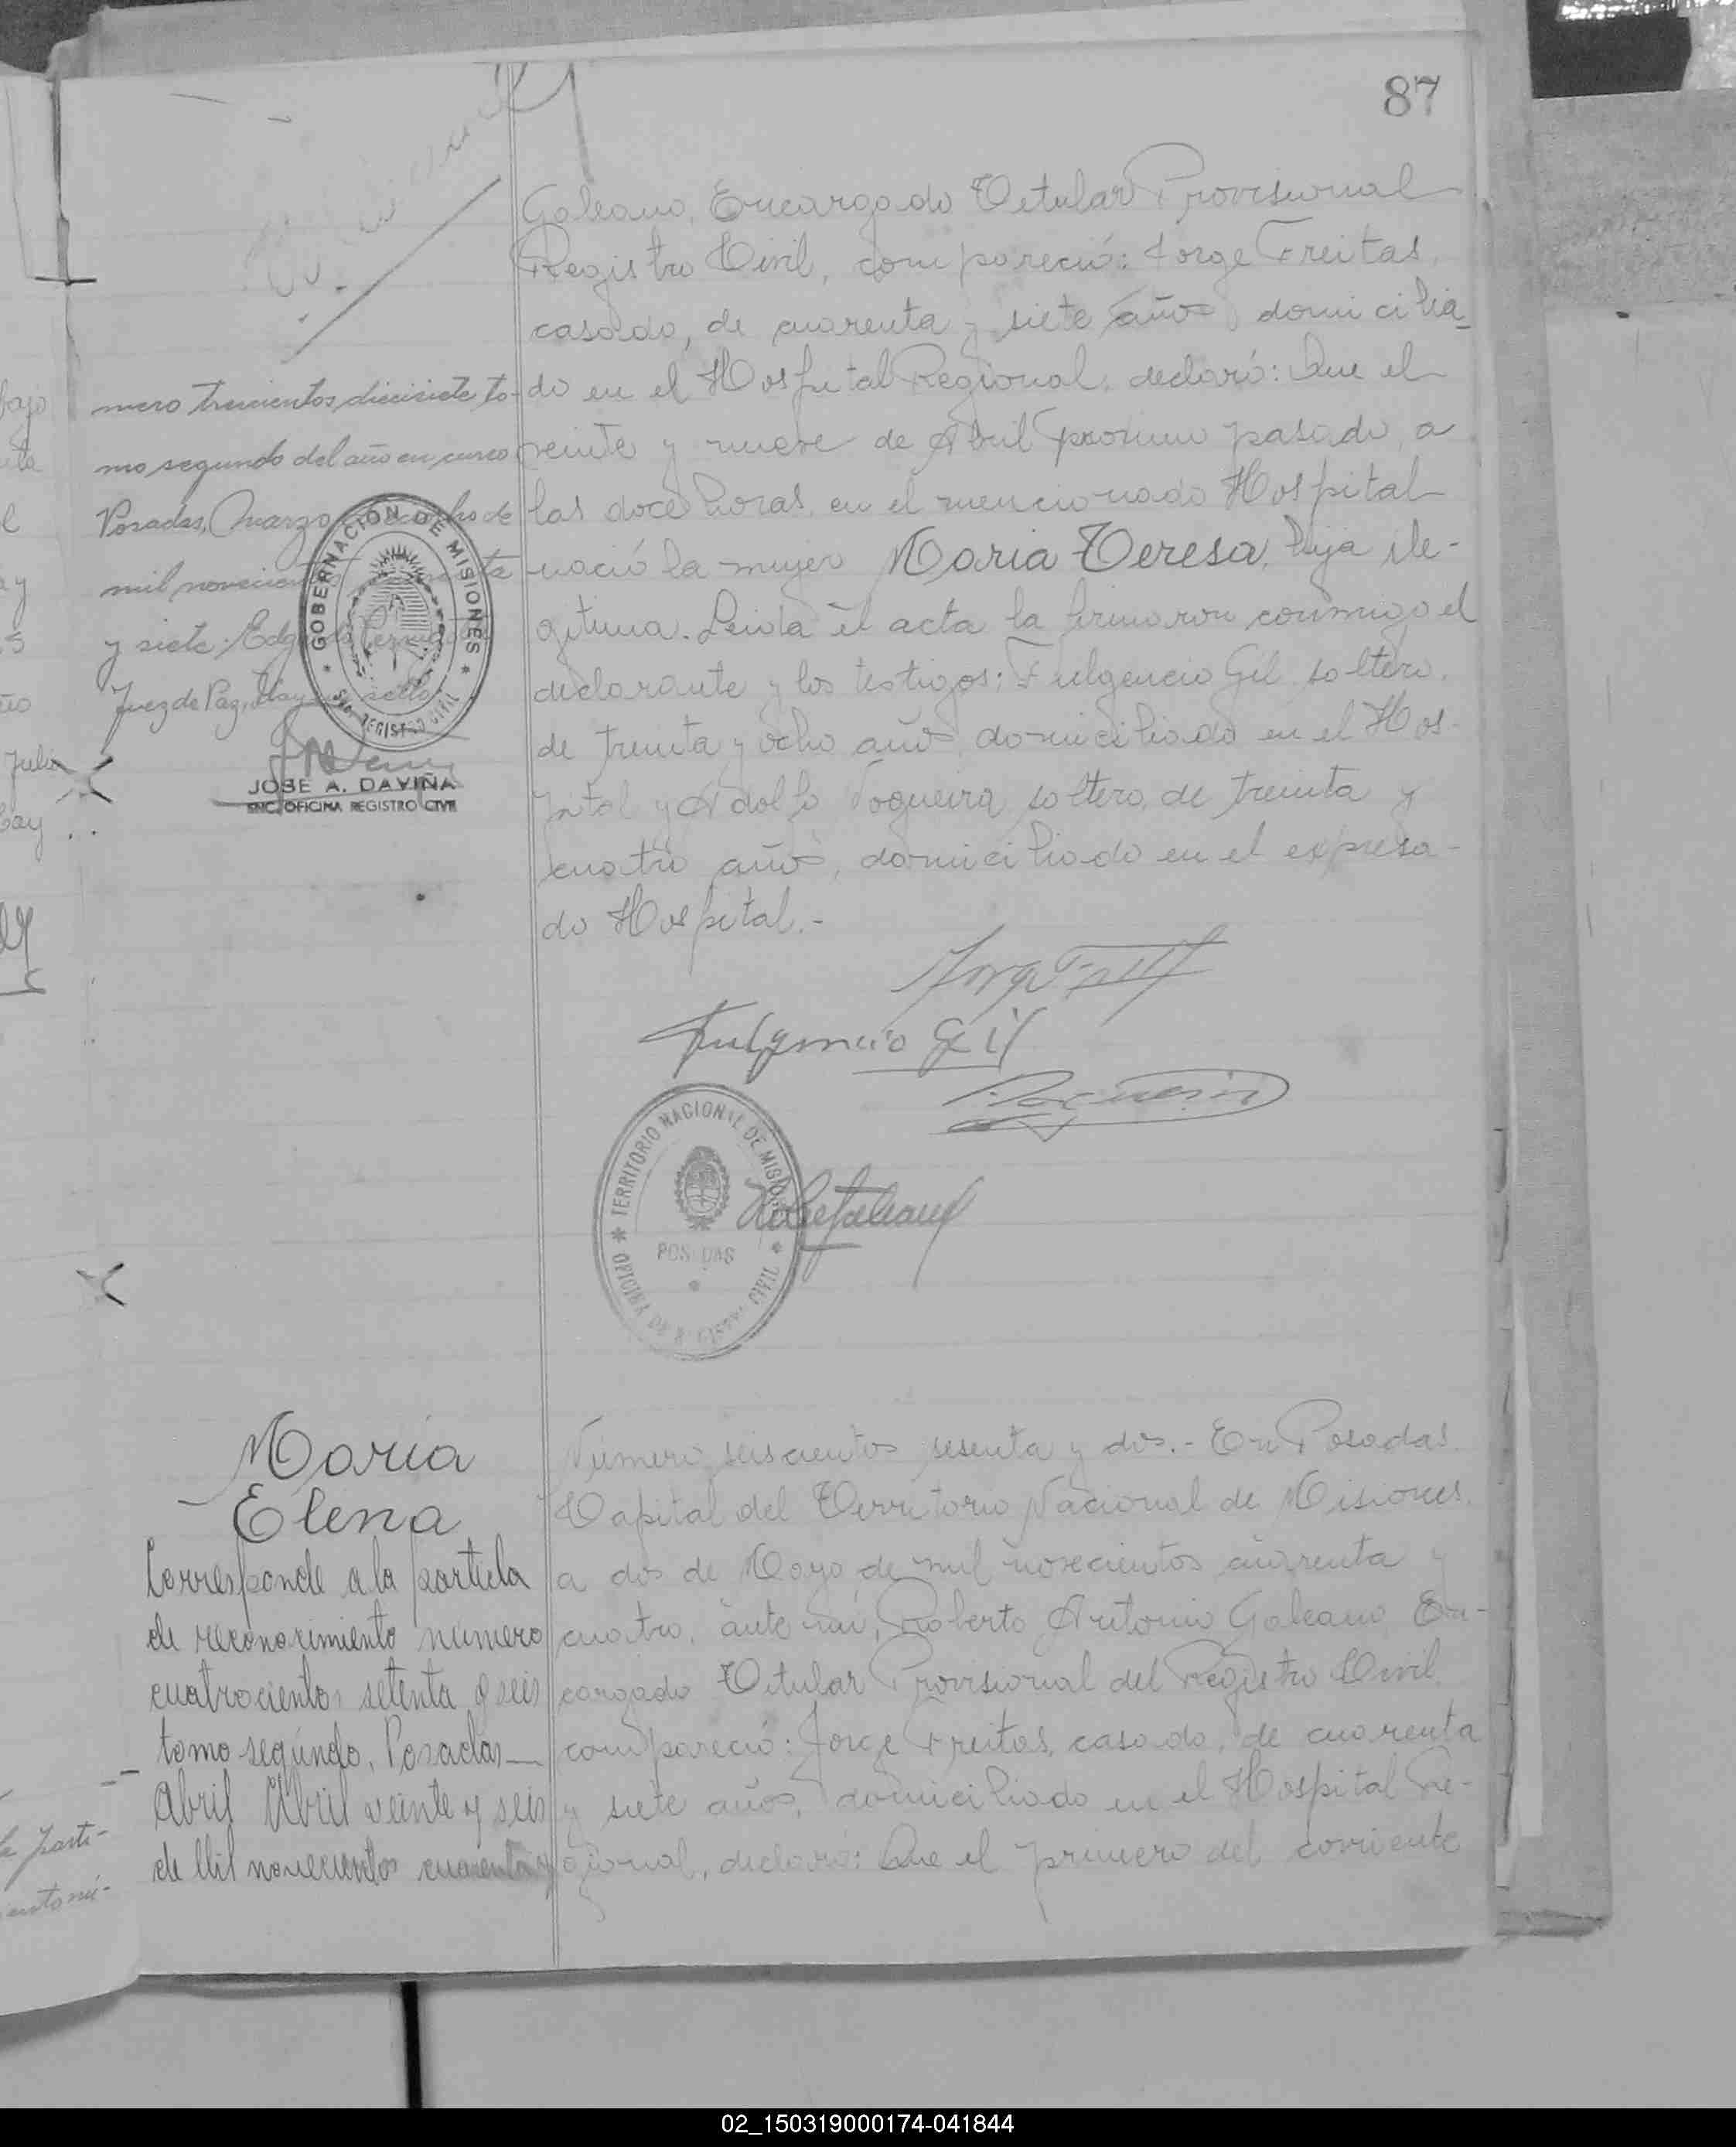 87
Galeano, Encargado Titular Provisional
Registro Civil, compareció: Jorge Freitas,
casado, de cuarenta y siete años domicilia-
do en el Hospital Regional, declaró: Que el
veinte y nueve de Abril proximo pasado, a
las doce horas, en el mencionado Hospital
nació la mujer Maria Teresa, hija ile-
gitima. Leida el acta la firmaron conmigo el
declarante y los testigos: Fulgencio Gil, soltero,
de treinta y ocho años, domiciliado en el Hos-
pital y Adolfo Nogueira, soltero, de treinta y
cuatro años, domiciliado en el expresa-
do Hospital.-
mero trescientos diecisiete, to-
mo segundo del año en curso
Posadas, Marzo de
mil
y siete.
Juez de Paz, Hay un sello
GOBERNACIÓN DE MISIONES
REGISTRO CIVIL
JOSE A. DAVIÑA
ENC. OFICINA REGISTRO CIVIL
Fulgencio Gil
TERRITORIO NACIONAL DE MISIONES
POSADAS
OFICINA DE REGISTRO CIVIL
Maria
Elena
Corresponde a la partida
de reconocimiento numero
cuatrocientos setenta y seis
tomo segundo, Posadas
Abril Abril veinte y seis
de Mil novecientos cuarenta y
Número seiscientos sesenta y dos.- En Posadas
Capital del Territorio Nacional de Misiones,
a dos de Mayo de mil novecientos cuarenta y
cuatro, ante mi, Roberto Antonio Galeano, En-
cargado Titular Provisional del Registro Civil,
compareció: Jorge Freitas, casado, de cuarenta
y siete años, domiciliado en el Hospital Re-
gional, declaró: Que el primero del corriente
02_150319000174-041844